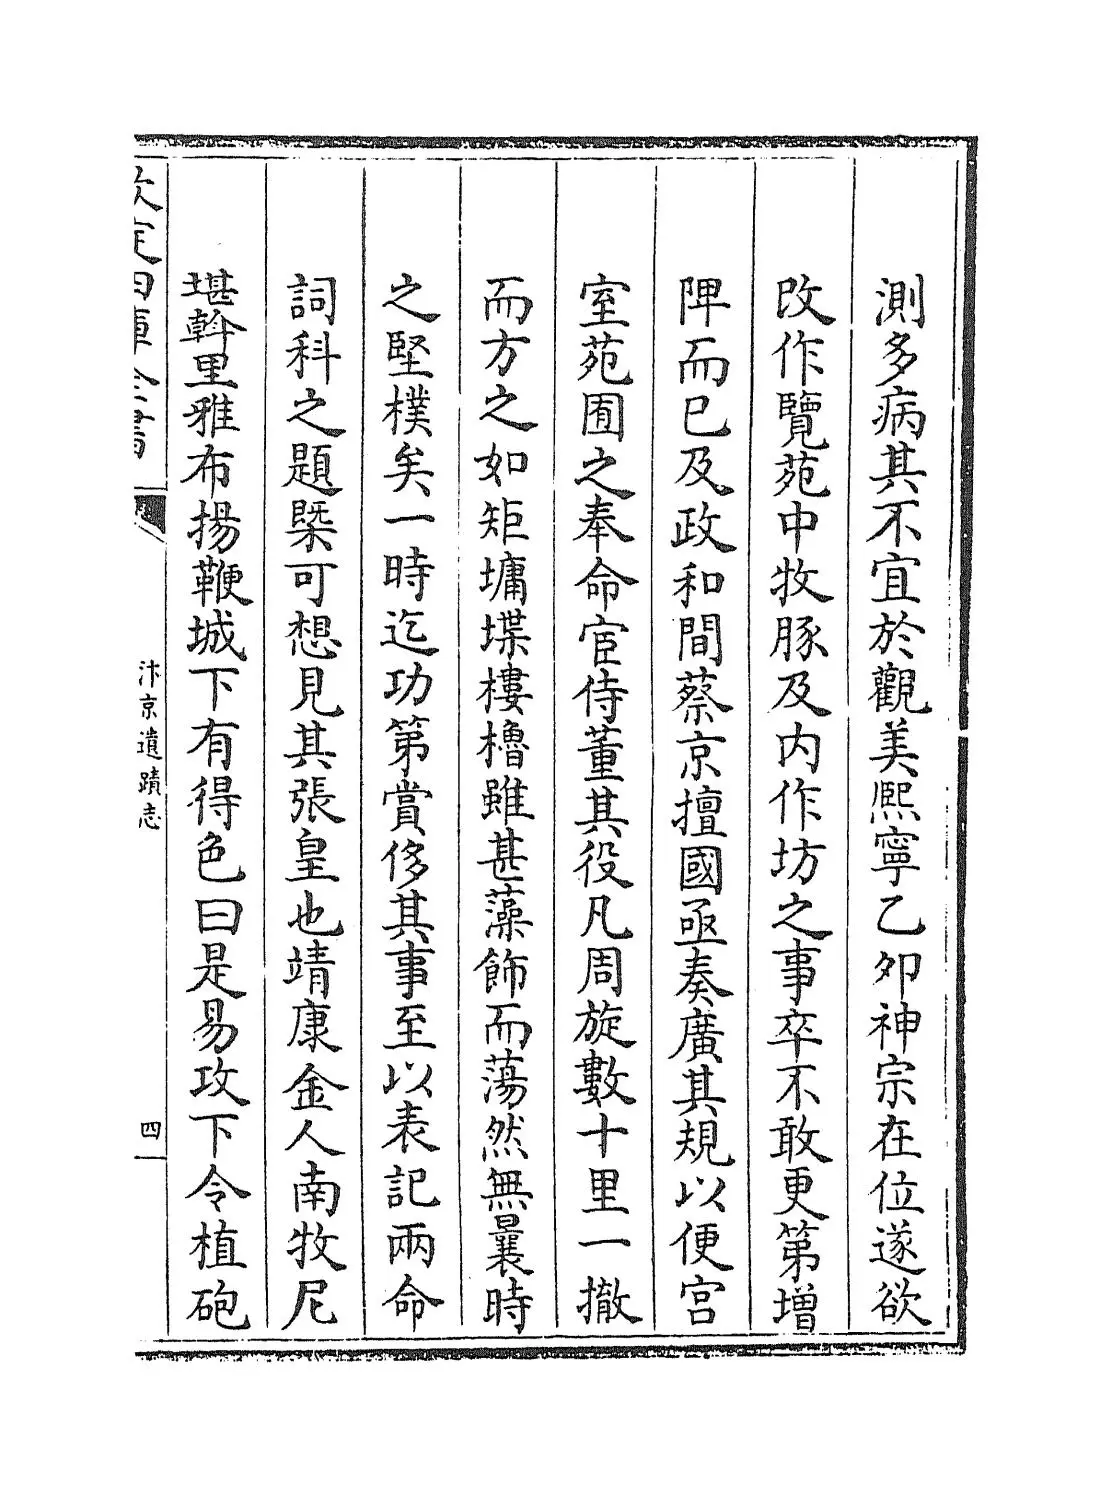 測多病其不宜於觀美熙寧乙夘神宗在位遂欲
改作覽苑中牧豚及内作坊之事卒不敢更第增
陴而已及政和間蔡京擅國亟奏廣其規以便宫
室苑囿之奉命宦侍董其役凡周旋數十里一撤
而方之如矩墉堞樓櫓雖甚藻飾而蕩然無曩時
之堅樸矣一時迄功第賞侈其事至以表記兩命
詞科之題槩可想見其張皇也靖康金人南牧尼
堪斡里雅布揚鞭城下有得色曰是易攻下令植砲
欽定四庫全書
汴京遺蹟志
四